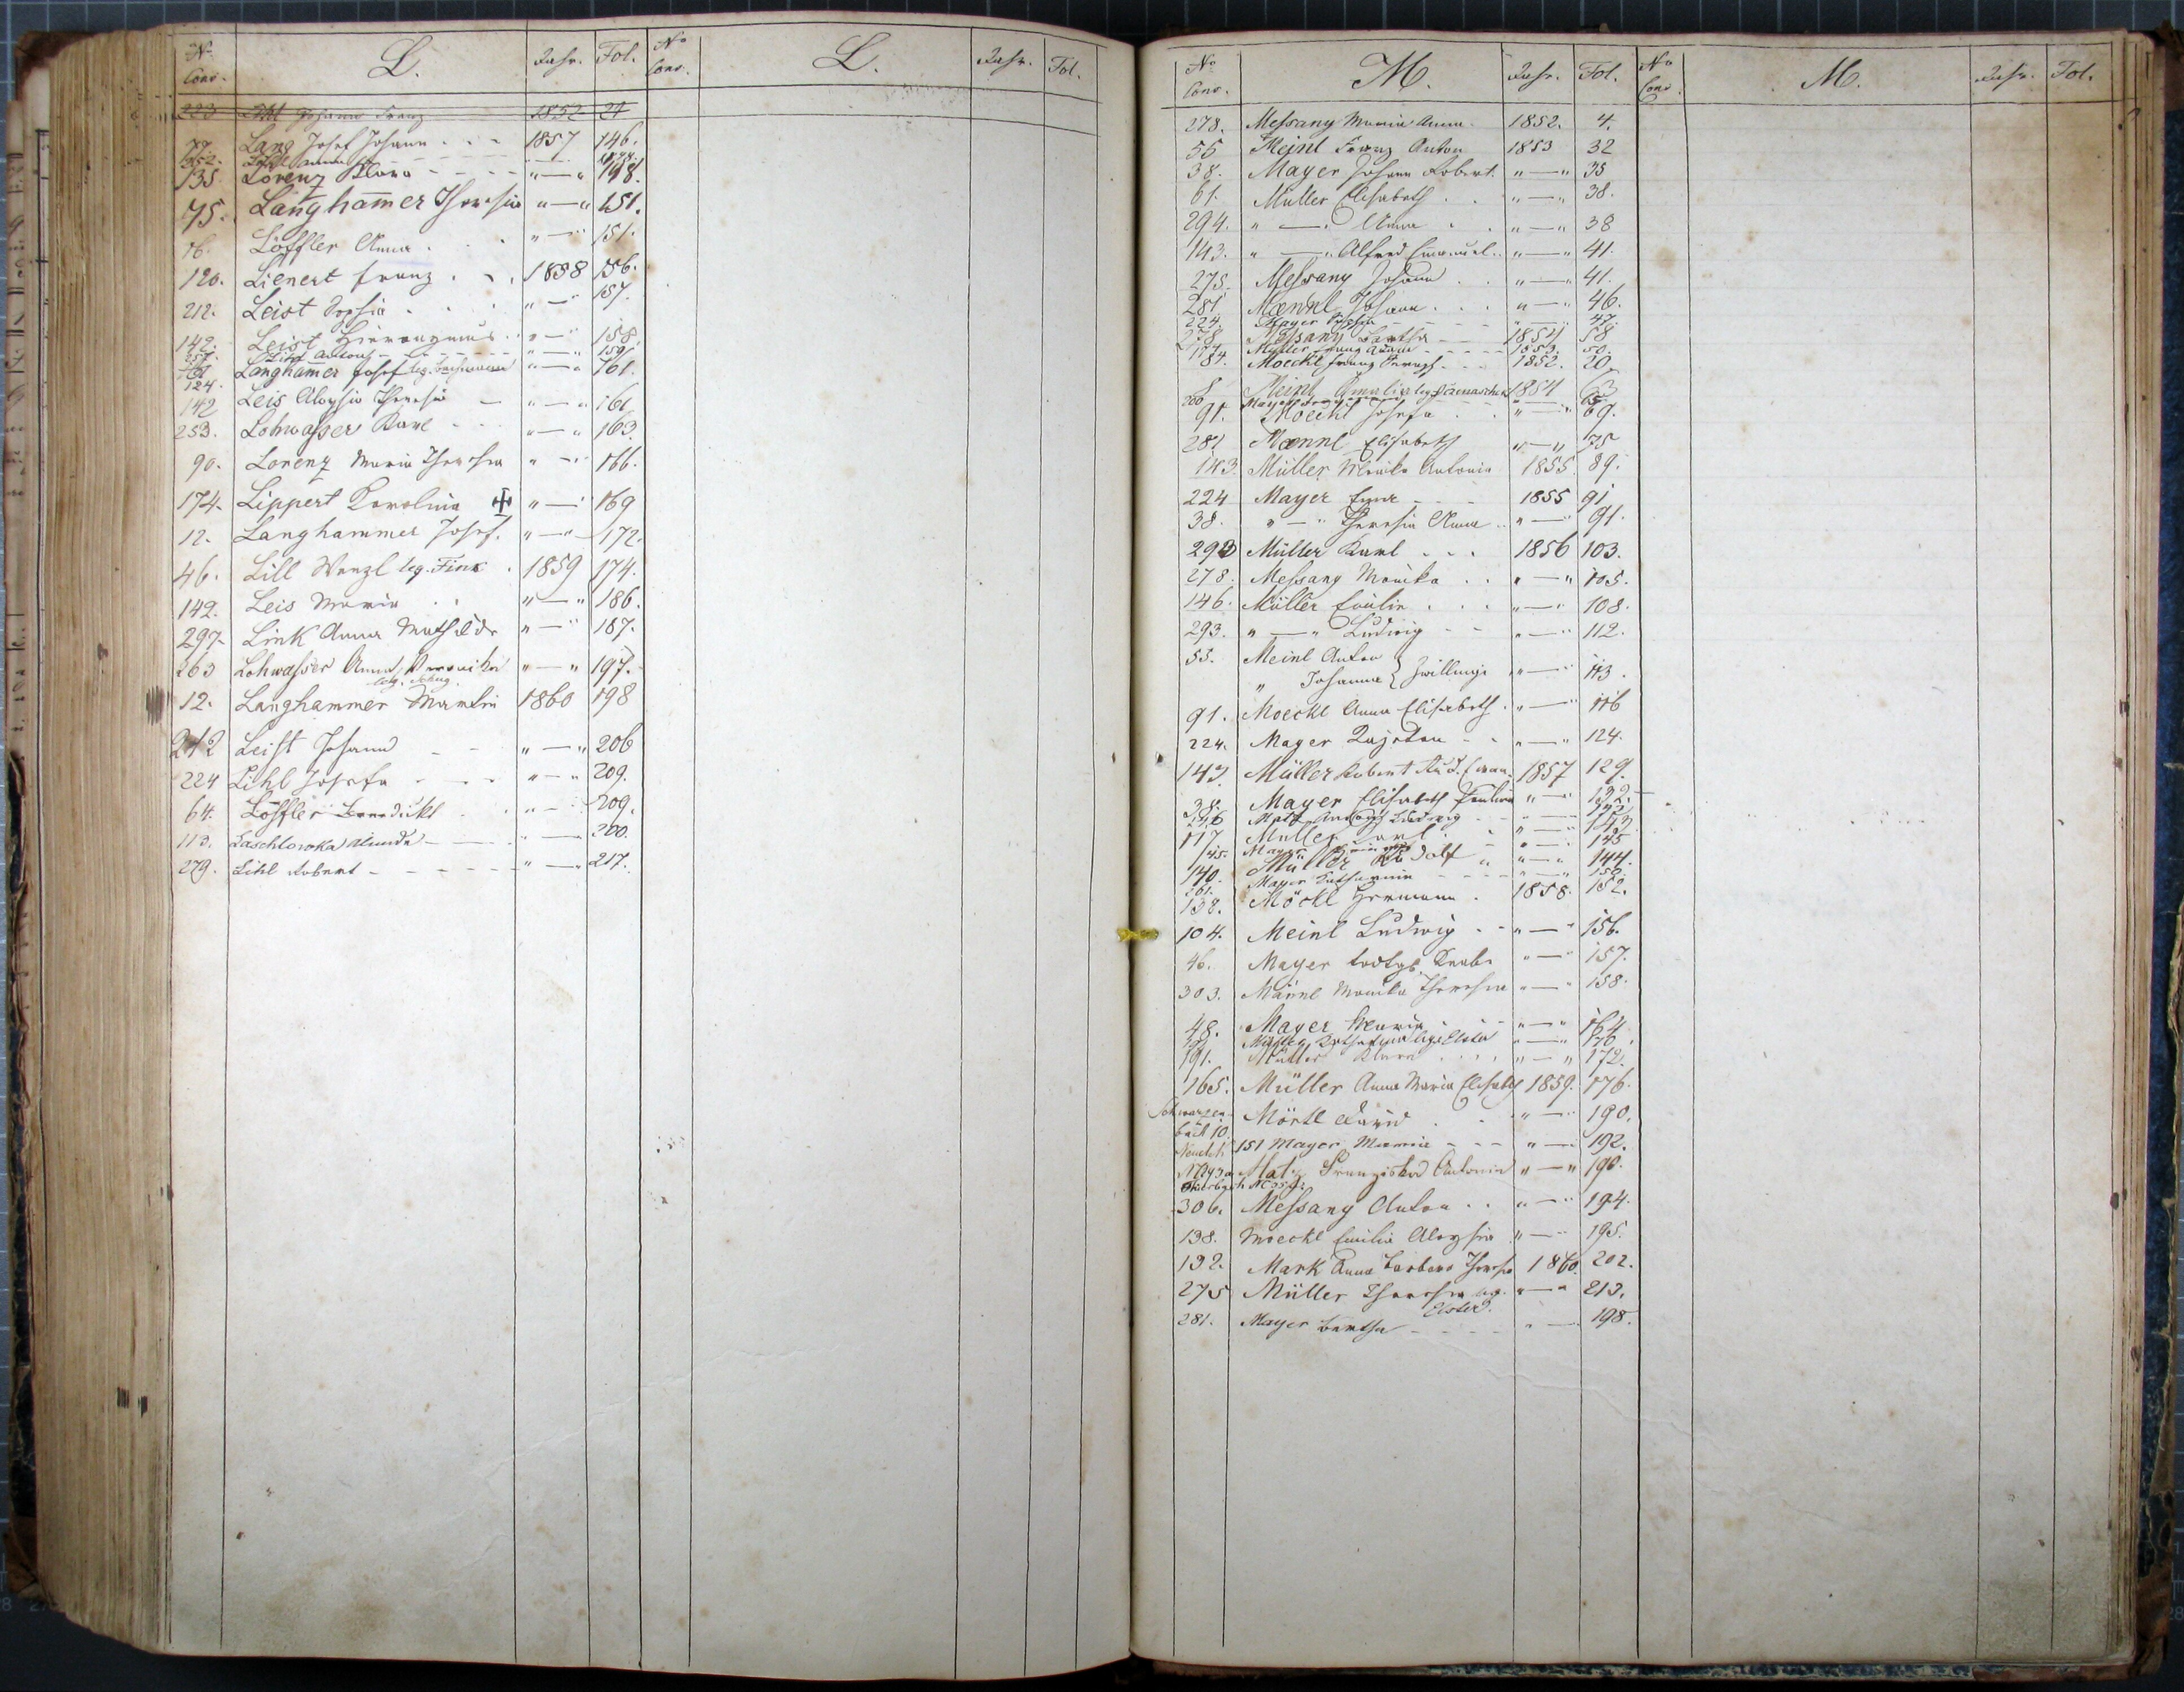 No Cons. L. Jahr. Fol. No Cons. L. Jahr. Fol.
223 Johann Franz 1852 27
77. Lang Josef Johann . . . 1857 146.
252.
135 Lorenz Klara - - - - "—" 148.
75. Langhammer Theresia "—" 151.
16. Löffler Anna . . . "—" 151.
120. Lienert Franz . . . 1858 156.
212. Leist Sophia . . . "—" 157.
142. Leist Hieronymus . "—" 158.
257. Anton "—" 159.
Langhammer Josef leg. Bachmann "—" 161.
124.
142 Leis Aloysia Theresia — "—" 161
253. Lohwasser Karl - - - "—" 163.
90. Lorenz Maria Theresia "—" 166.
174. Lippert Karolina ✠ "—" 169
12. Langhammer Josef. "—" 172.
46. Lill Wenzl leg. Fink . 1859 174.
142. Leis Maria . . "—" 186.
297. Link Anna Mathilde "—" 187.
263 Lohwasser Anna Veronika "—" 197.
leg.
12. Langhammer Martin 1860 198
212 Leist Johann - - "—" 206
224 Lihl Josefa - - - "—" 209.
64. Löffler Benedikt . . "—" 209.
113. "—" 200.
279. Lihl Robert - - - - - "—" 217.
No Cons. M. Jahr. Fol. No Cons. M. Jahr. Fol.
278. Messany Maria Anna 1852. 4.
56 Meinl Franz Anton 1853 32
38. Mayer Johann Robert. "—" 35
61. Müller Elisabeth . . "—" 38.
294. "—" Anna . . "—" 38
143. "—" Alfred Emanuel. "—" 41.
275. Messany Johann . . "—" 41.
281 Maennl Johann . . . "—" 46.
224. Mayer Sophia - - - - "—" 47.
278 Messany Bertha — 1854 58
174. Müller Franz Adam - - - - 1853. 50.
84. Moeckl Franz Joseph - - - 1852. 20
8 Meinl Amalia leg. 1854 63
200 Mayer 65
91. Moeckl Josefa . . "—" 69.
281 Maennl Elisabeth "—" 75
143. Müller Monika Antonia 1855 89.
224 Mayer Emma - - - 1855 91
38. "—" Theresia Anna . . "—" 91.
293 Müller Karl . . . 1856 103.
278. Messany Monika . . "—" 105.
146. Müller Emilie . . . "—" 108.
293. "—" Ludwig - - "—" 112.
55. Meinl Anton
" Johanna } Zwillinge "—" 113.
91. Moeckl Anna Elisabeth . "—" 116
224. Mayer Kajetan - - "—" 124.
143 Müller Robert Rud. Eman. 1857 129.
38. Mayer Elisabeth Paulina "—" 132.
Matz Ludwig
117 Müller Karl . "—" 143
145. Mayer "—" 145
140. Müller Rudolf "—" 144.
261. Mayer Katharina - - - - "—" 150.
138. Möckl Hermann . 1858. 152.
104. Meinl Ludwig - - "—" 156.
46. Mayer todtgb. Knabe "—" 157.
303. Männl Monika Theresia "—" 158.
48. Mayer Maria - - "—" 164.
Müller Katharina leg. Elster "—" 170.
191. Müller Klara . . . . "—" 172.
165. Müller Anna Maria Elisabeth 1859. 176.
Schwarzenbach 10. Mörtl . . "—" 190.
Neudek 151 Mayer Marie - - - "—" 192.
Matz Franziska Antonia "—" 190.
306. Messany Anton . . "—" 194.
138. Moeckl Emilia Aloysia "—" 195.
132. Mark Anna Barbara Theresia 1860. 202.
275 Müller Theresia leg. "—" 213.
Elster.
281. Mayer Bertha - - - - "—" 198.